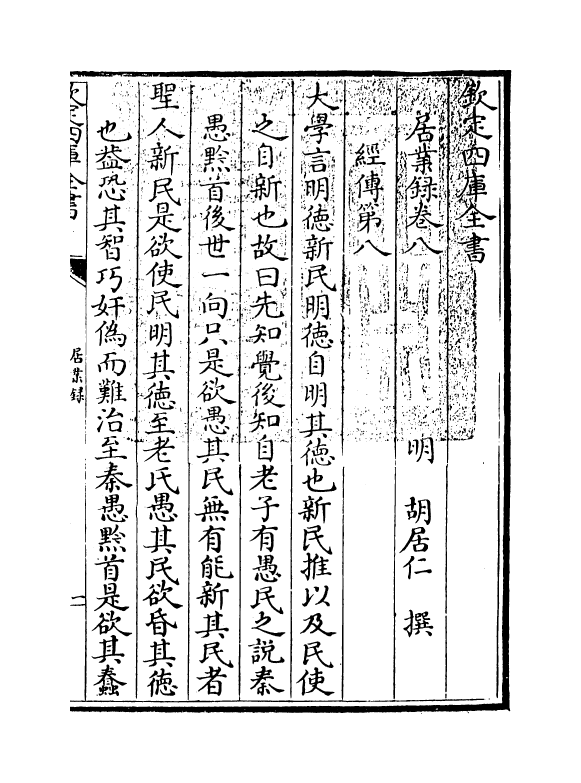 欽定四庫全書
居業録巻八
明 胡居仁 撰
經傳第八
大學言明徳新民明徳自明其徳也新民推以及民使
之自新也故曰先知覺後知自老子有愚民之説秦
愚黔首後世一向只是欲愚其民無有能新其民者
聖人新民是欲使民明其徳至老氏愚其民欲昏其徳
也葢恐其智巧奸偽而難治至秦愚黔首是欲其蠢
欽定四庫全書
居業録
一